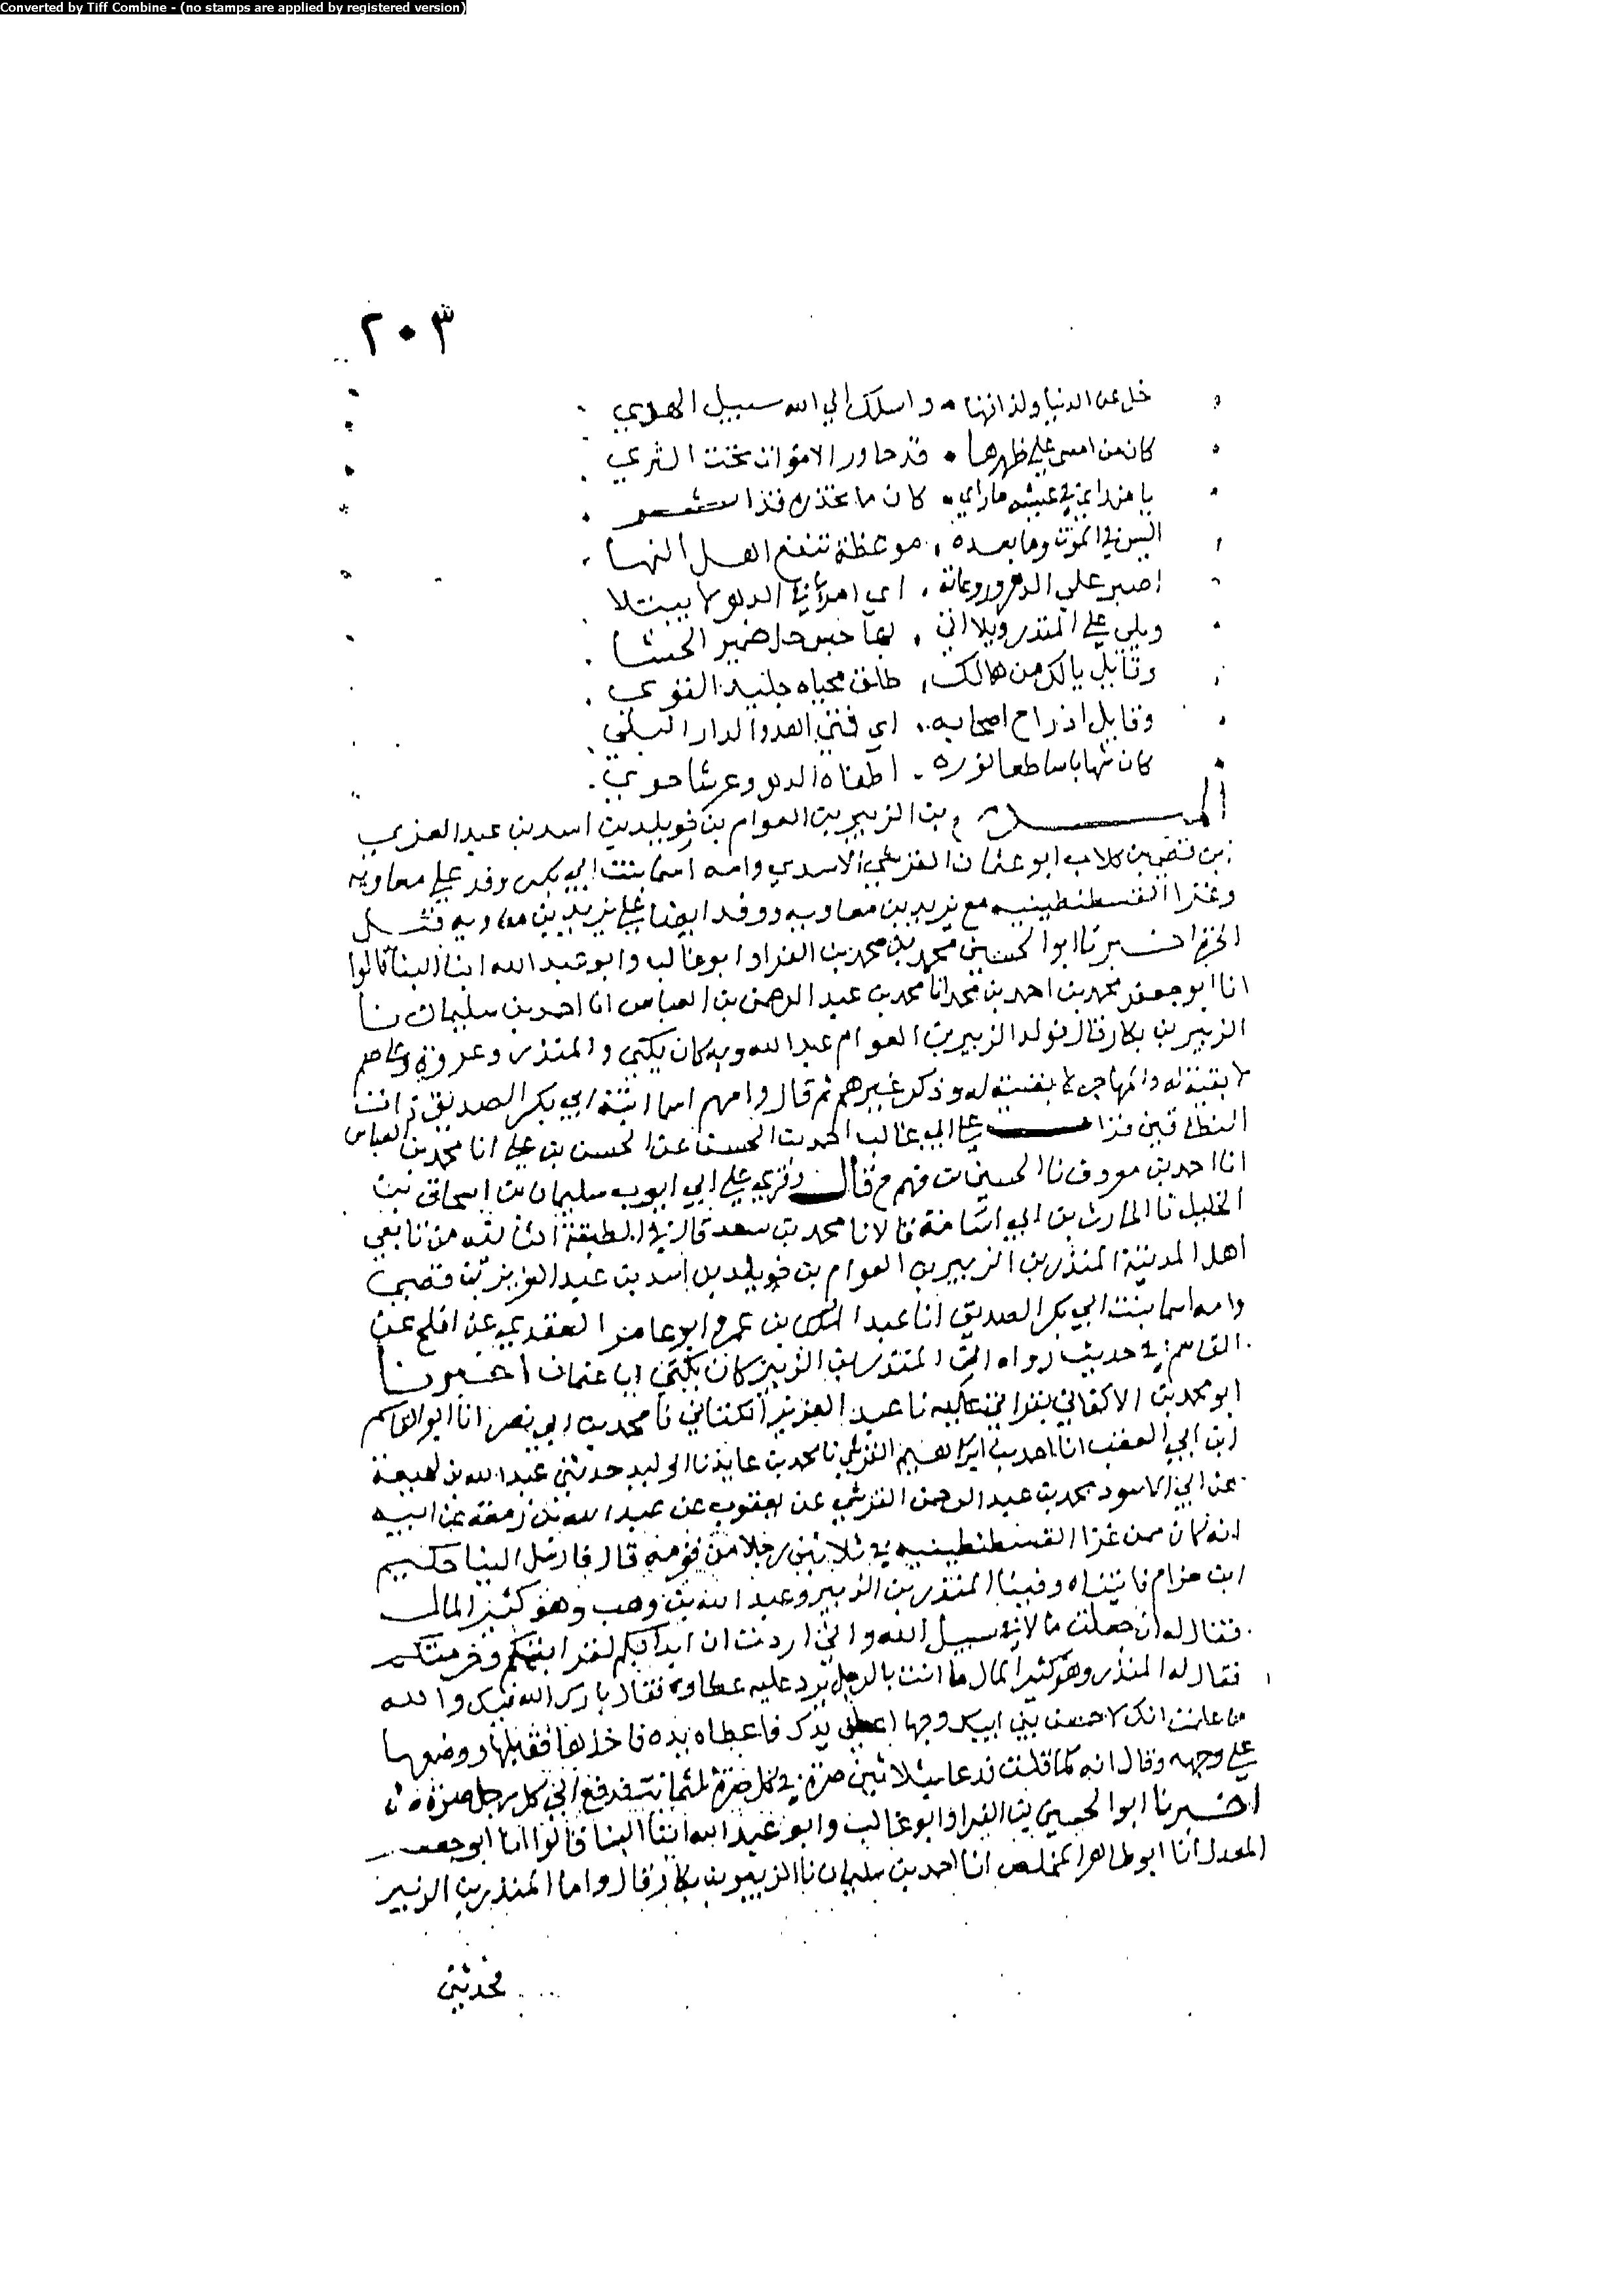 Converted by Tiff Combine - (no stamps are applied by registered version)
٢٠٣
خل عن الدنيا ولذاتها واسلك الي الله سبيل الهدي
كان من امسى علي ظهرها قد جاور الاموات تحت الثري
يا من راي في عيشه ما راي كان ما تحذره قد
اليس في الموت وما بعده موعظة تنفع اهل النها
اصبر علي الدهر وروعاته اي امرئ في الدهر لا يبتلا
ويلي علي المنذر ويلا اني حل ضمير الحشا
وقايل يا لك من هالك طلق محياه جليد القوي
وقايل اذ راح اصحابه اي فتي اهدوا لدار البلي
كان شهابا ساطعا نوره اطفاه الدهر
المنذر بن الزبير بن العوام بن خويلد بن اسد بن عبد العزي
بن قصي بن كلاب ابو عثمان القرشي الاسدي وامه اسما بنت ابي بكر وفد علي معاويه
وغزا القسطنطينيه مع يزيد بن معاويه ووفد ايضا علي يزيد بن معاويه قبل
الحره اخبرنا ابو الحسين محمد بن محمد بن الفرا وابو غالب وابو عبد الله ابنا البنا قالوا
انا ابو جعفر محمد بن احمد بن محمد انا محمد بن عبد الرحمن بن العباس انا احمد بن سليمان نا
الزبير بن بكار قال فولد الزبير بن العوام عبد الله وبه كان يكني والمنذر وعروة وعاصم
لا بقية له والمهاجر لا بقية له وذكر غيرهم ثم قال وامهم اسما ابنة ابي بكر الصديق ذات
النطاقين قرات علي ابي غالب احمد بن الحسن عن الحسن بن علي انا محمد بن العباس
انا احمد بن معروف نا الحسين بن فهم ح قال وقري علي ابي ايوب سليمان بن اسحاق بن
الخليل نا الحارث بن ابي اسامة قالا نا محمد بن سعد قال في الطبقة الثانية من تابعي
اهل المدينة المنذر بن الزبير بن العوام بن خويلد بن اسد بن عبد العزي بن قصي
وامه اسما بنت ابي بكر الصديق انا عبد الملك بن عمرو ابو عامر العقدي عن افلح عن
القاسم في حديث رواه ان المنذر بن الزبير كان يكنى ابا عثمان اخبرنا
ابو محمد بن الاكفاني بقراتي عليه نا عبد العزيز الكتاني نا محمد بن ابي نصر انا ابو القاسم
ابن ابي العقب انا احمد بن ابراهيم القرشي نا محمد بن عايذ نا الوليد حدثني عبد الله بن لهيعة
عن ابي الاسود محمد بن عبد الرحمن القرشي عن يعقوب عن عبد الله بن زمعة عن ابيه
انه كان ممن غزا القسطنطينيه في ثلاثين رجلا من قومه قال فارسل الينا حكيم
ابن حزام فاتيناه وفينا المنذر بن الزبير وعبد الله بن وهب وهو كثير المال
فقال له اني جعلت مالا في سبيل الله واني اردت ان ابدا بكم لقرابتكم وحرمتكم
فقال له المنذر وهو كثير المال ما انت بالرجل يرد عليه عطاوه فقال بارك الله فيك والله
ما علمت انك لاحسن بني ابيك وجها اعطني يدك فاعطاه يده فاخذها فقبلها ووضعها
علي وجهه وقال انه كما قلت فدعا بثلاثين صرة في كل صرة ثمانية فدفع الي كل رجل صرة
اخبرنا ابو الحسين بن الفرا وابو غالب وابو عبد الله ابنا البنا قالوا انا ابو جعفر
المعدل انا ابو طاهر المخلص انا احمد بن سليمان نا الزبير بن بكار قال واما المنذر بن الزبير
فحدثني